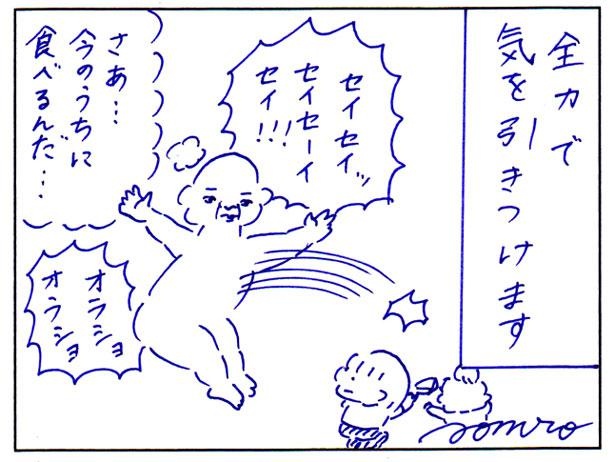 全力で
気を引きつけます
セイセイッ
セイセーイ
セイ!!!
さあ…
今のうちに
食べるんだ…
オラショ
オラショ